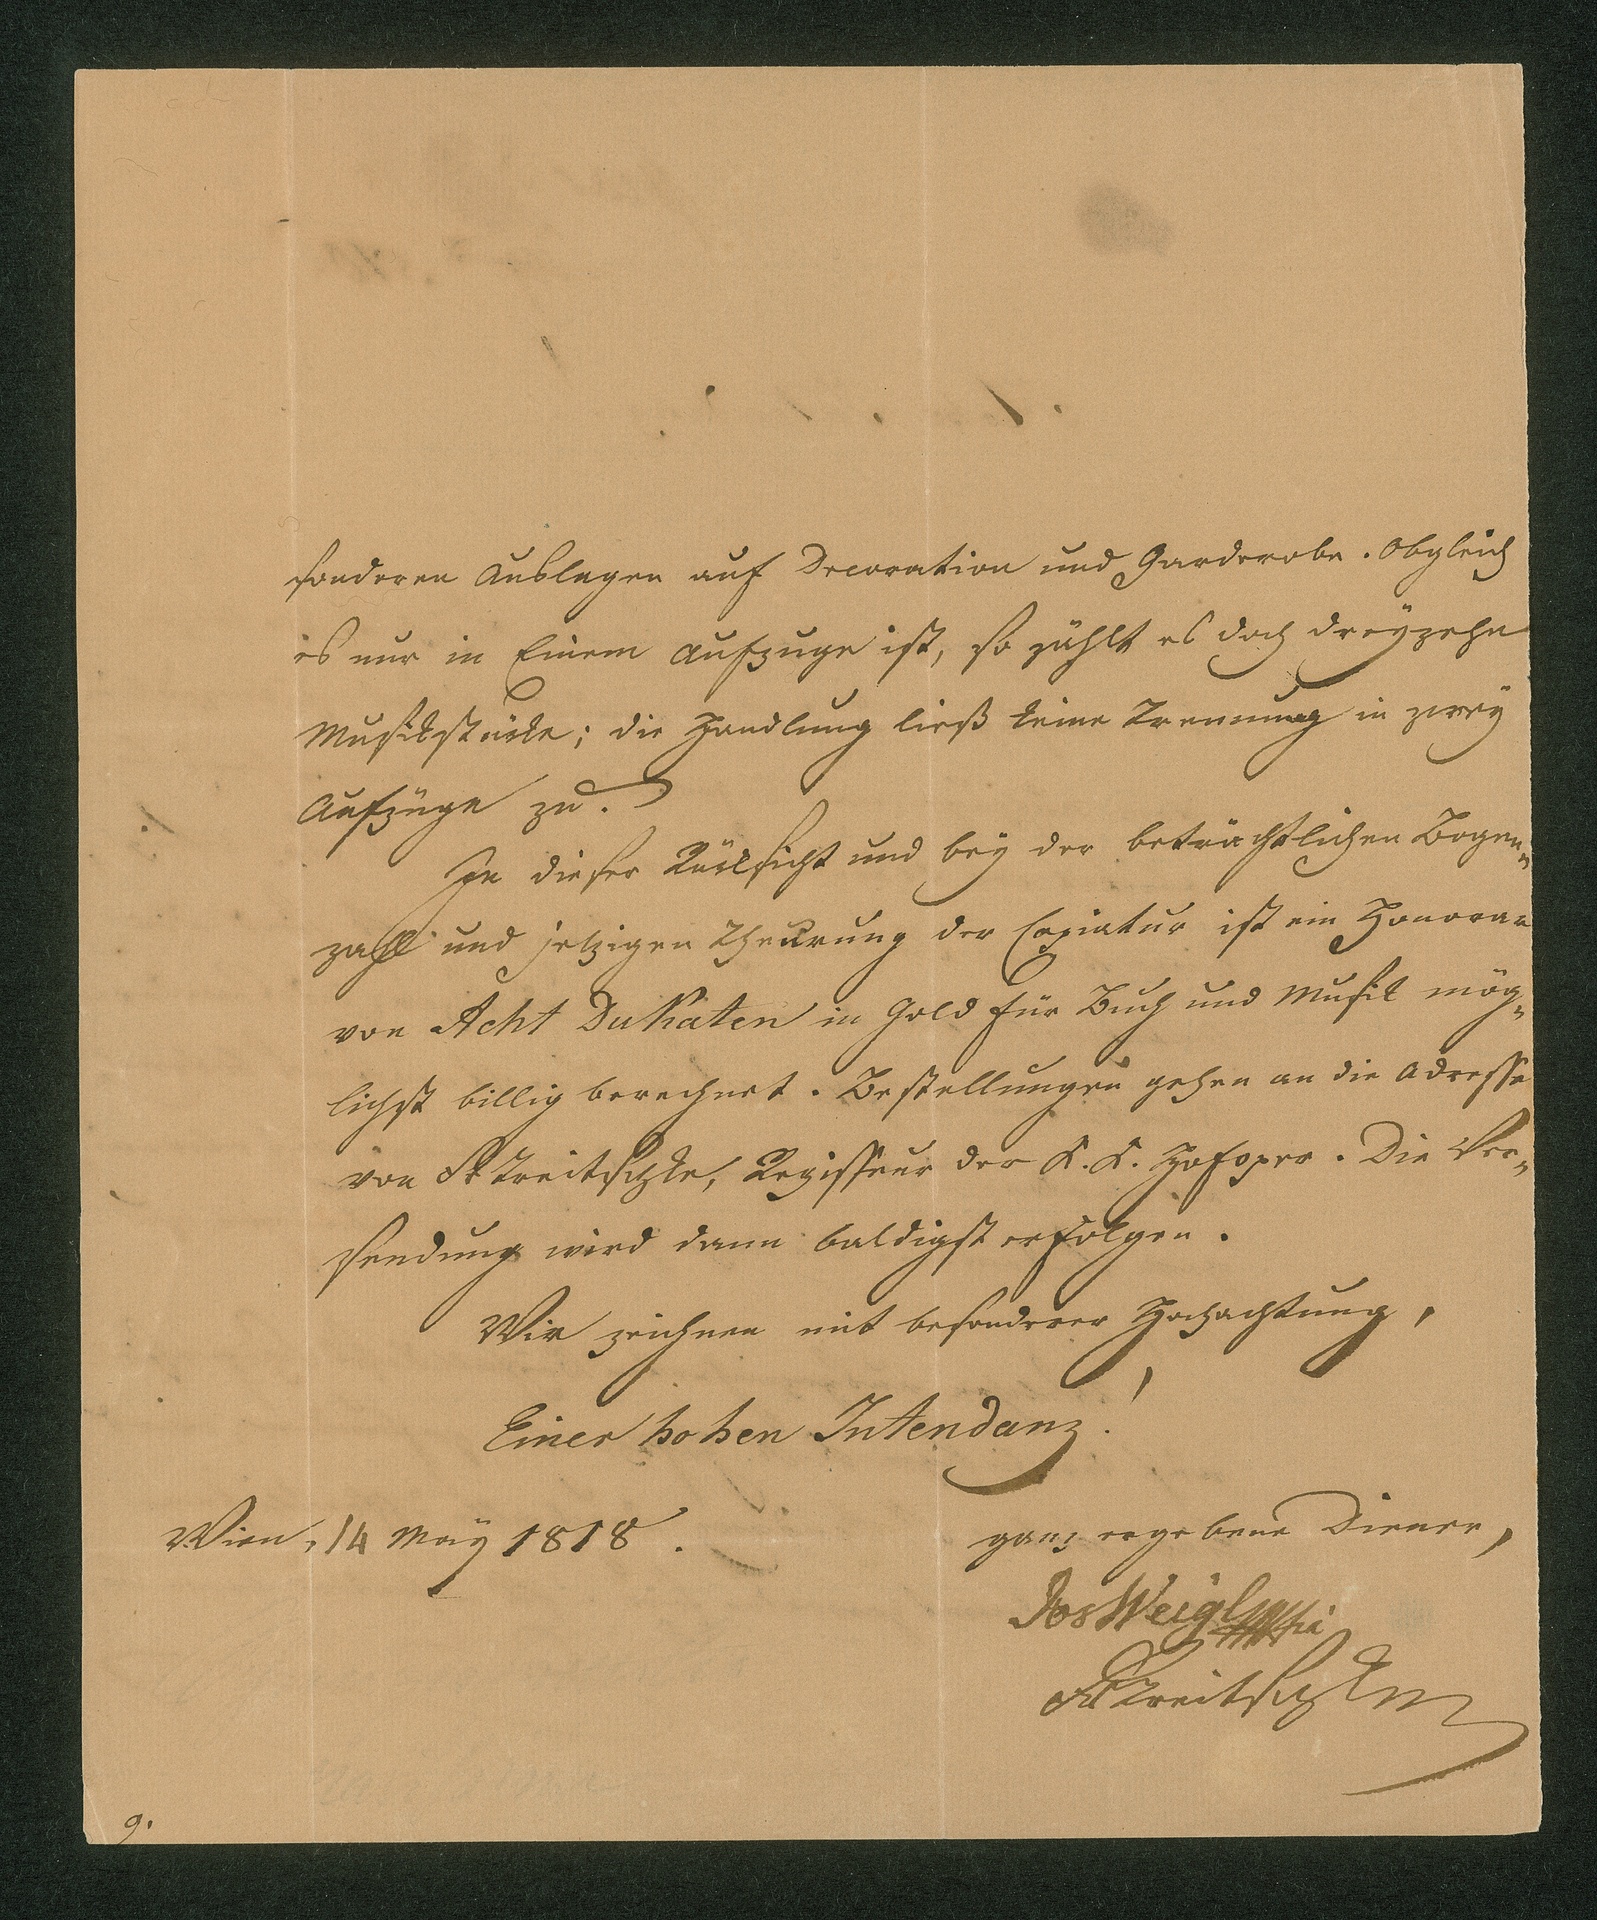 sonderen Auslagen auf Decoration und Garderobe. Obgleich
es nur in Einem Aufzuge ist, so zählt es doch dreÿzehn
Musikstücke; die Handlung ließ keine Trennung in zweÿ
Aufzüge zu.
In dieser Rücksicht und beÿ der beträchtlichen Bogen„
zahl und jetzigen Theurung der Copiatur ist ein Honorar
von Acht Dukaten in Gold für Buch und Musik mög„
lichst billig berechnet. Bestellungen gehen an die Adresse
von Fr Treitschke, Regisseur der K. K. Hofoper. Die Ver„
sendung wird dann baldigst erfolgen.
Wir zeichnen mit besonderer Hochachtung,
Einer hohen Intendanz!
Wien, 14 Maÿ 1818.
ganz ergebene Diener,
Jos Weigl
Fr Treitschke
9.